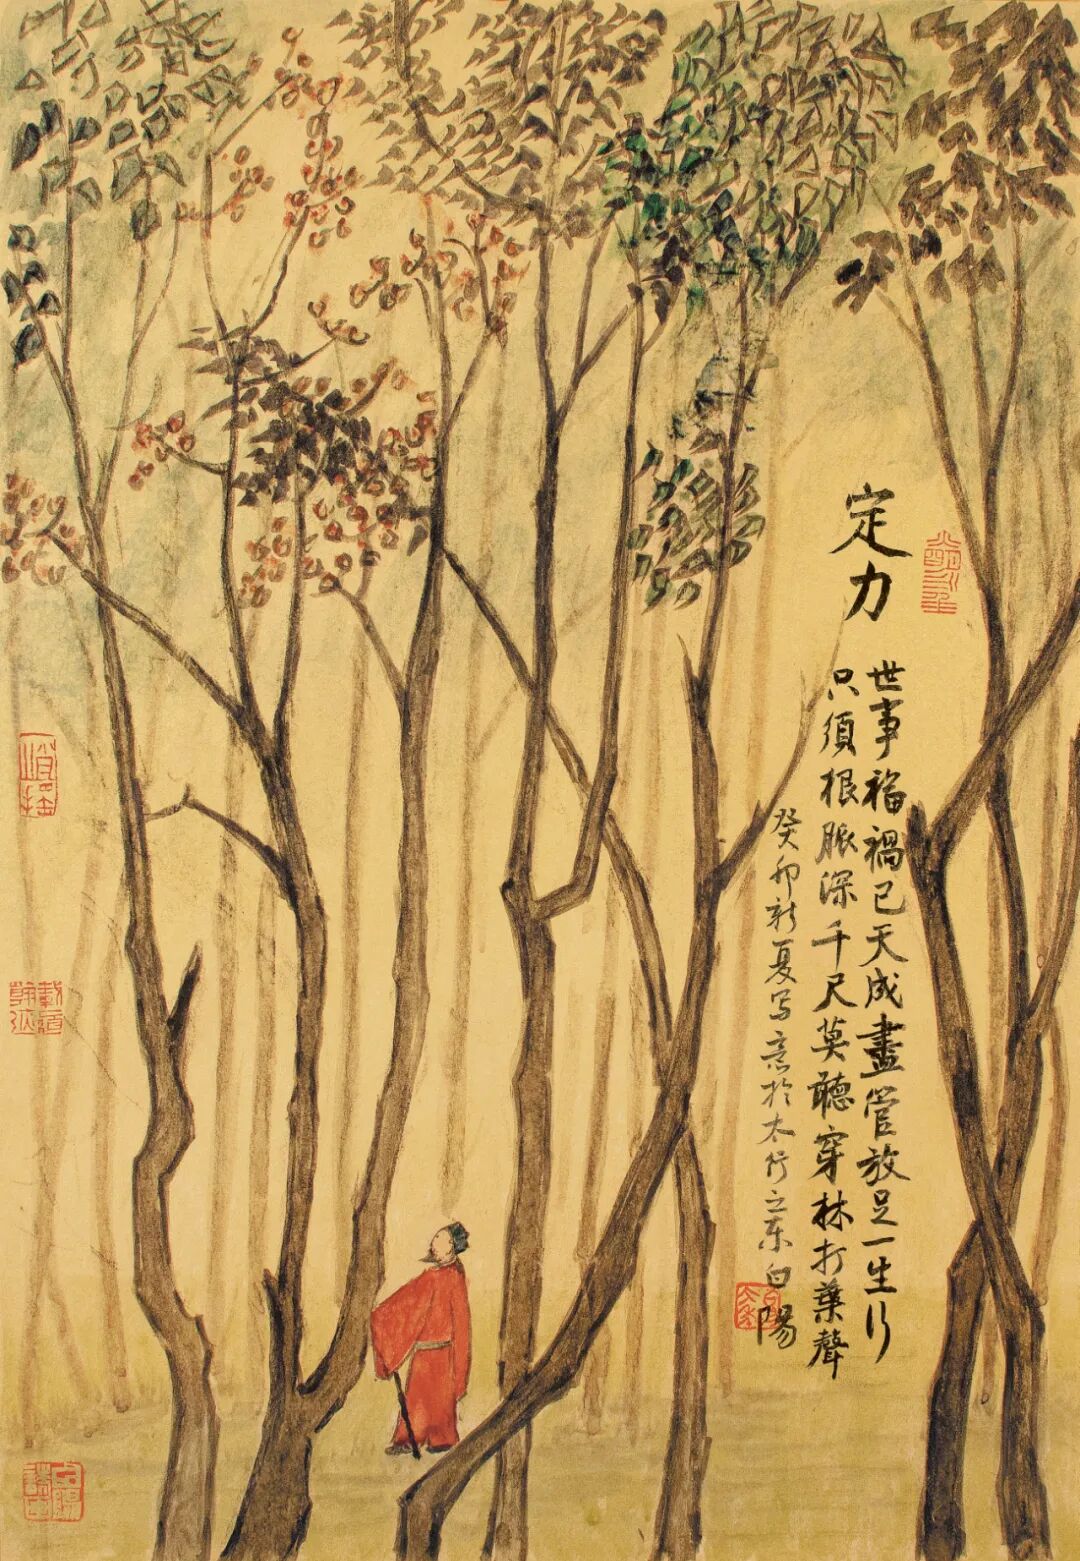 定力
世事福禍已天成盡管放足一生行
只須根脈深千尺莫聽穿林打葉聲
癸卯新夏写意於太行之东白陽